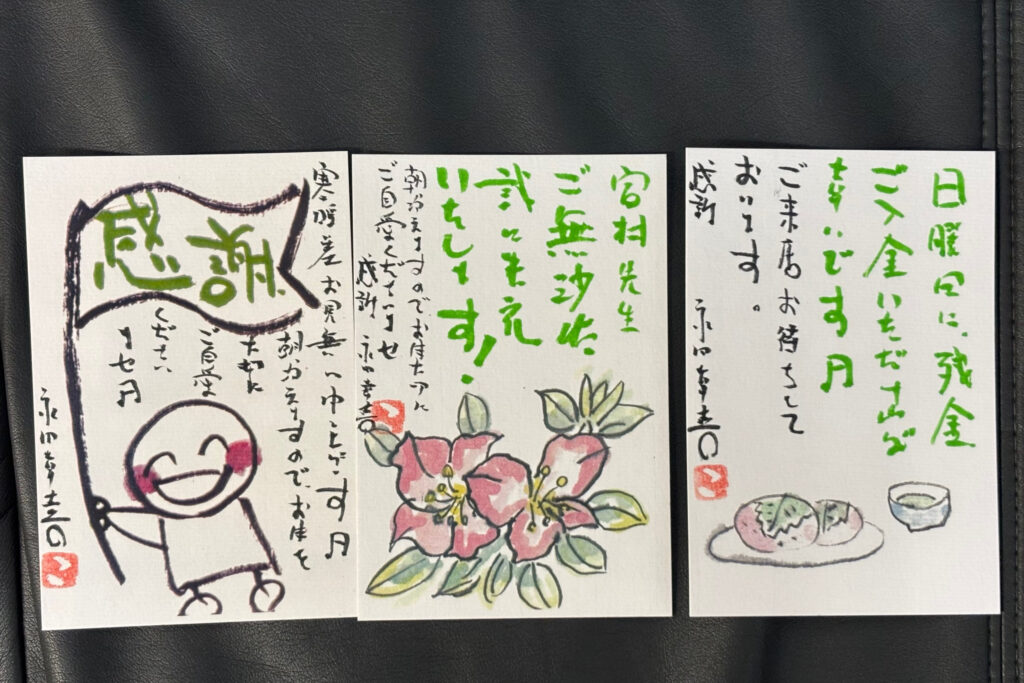 寒暖差お見舞い申し上げます
感謝
朝冷えますので、お体を
大切に
ご自愛
ください
ませ
宮村先生
ご無沙汰
誠に失礼
いたします!
朝冷えますのでお体大切に
ご自愛くださいませ
感謝
日曜日に、残金
ご入金いただければ
幸いです
ご来店お待ちして
おります。
感謝